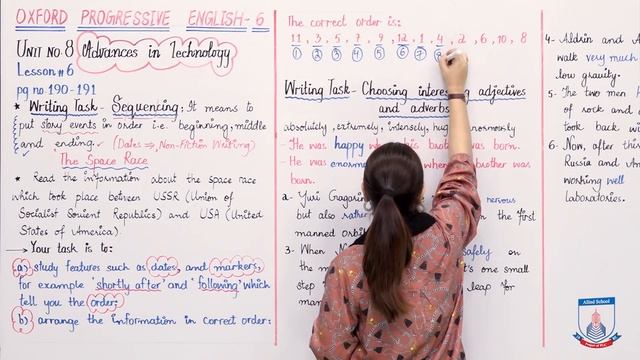 OXFORD PROGRESSIVE ENGLISH-6
UNIT NO.8 Advances in Technology
Lesson #6
pg no 190-191
* Writing Task - Sequencing: It means to
put story events in order i.e. beginning, middle
and ending. (Dates => Non-Fiction Writing)
The Space Race
* Read the information about the space race
which took place between USSR (Union of
Socialist Soviet Republics) and USA (United
States of America).
→ Your task is to:
a) study features such as dates, and markers,
for example 'shortly after' and 'following' which
tell you the order:
b) arrange the information in correct order:
The correct order is:
11, 3, 5, 7, 9, 12, 1, 4, 2, 6, 10, 8
1 2 3 4 5 6 7
Writing Task - Choosing interesting adjectives
and adverbs
absolutely, extremely, intensely, enormously
- He was happy his brother was born.
- He was when brother was
born.
a- Yuri Gagarin nervous
but also the first
manned
3- When safely on
the one small
step leap for
man
4- Aldrin and
walk very much
low gravity.
5- The two men
of rock and
took back
6- Now, after this
Russia and
working well
laboratories.
Allied School